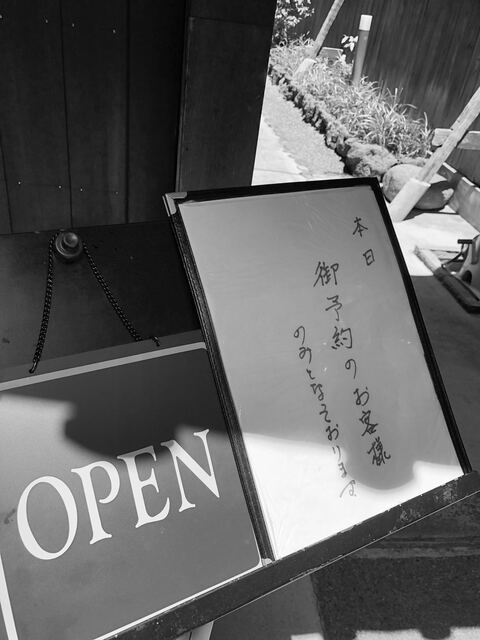 OPEN
本日
御予約のお客様
のみとなっております